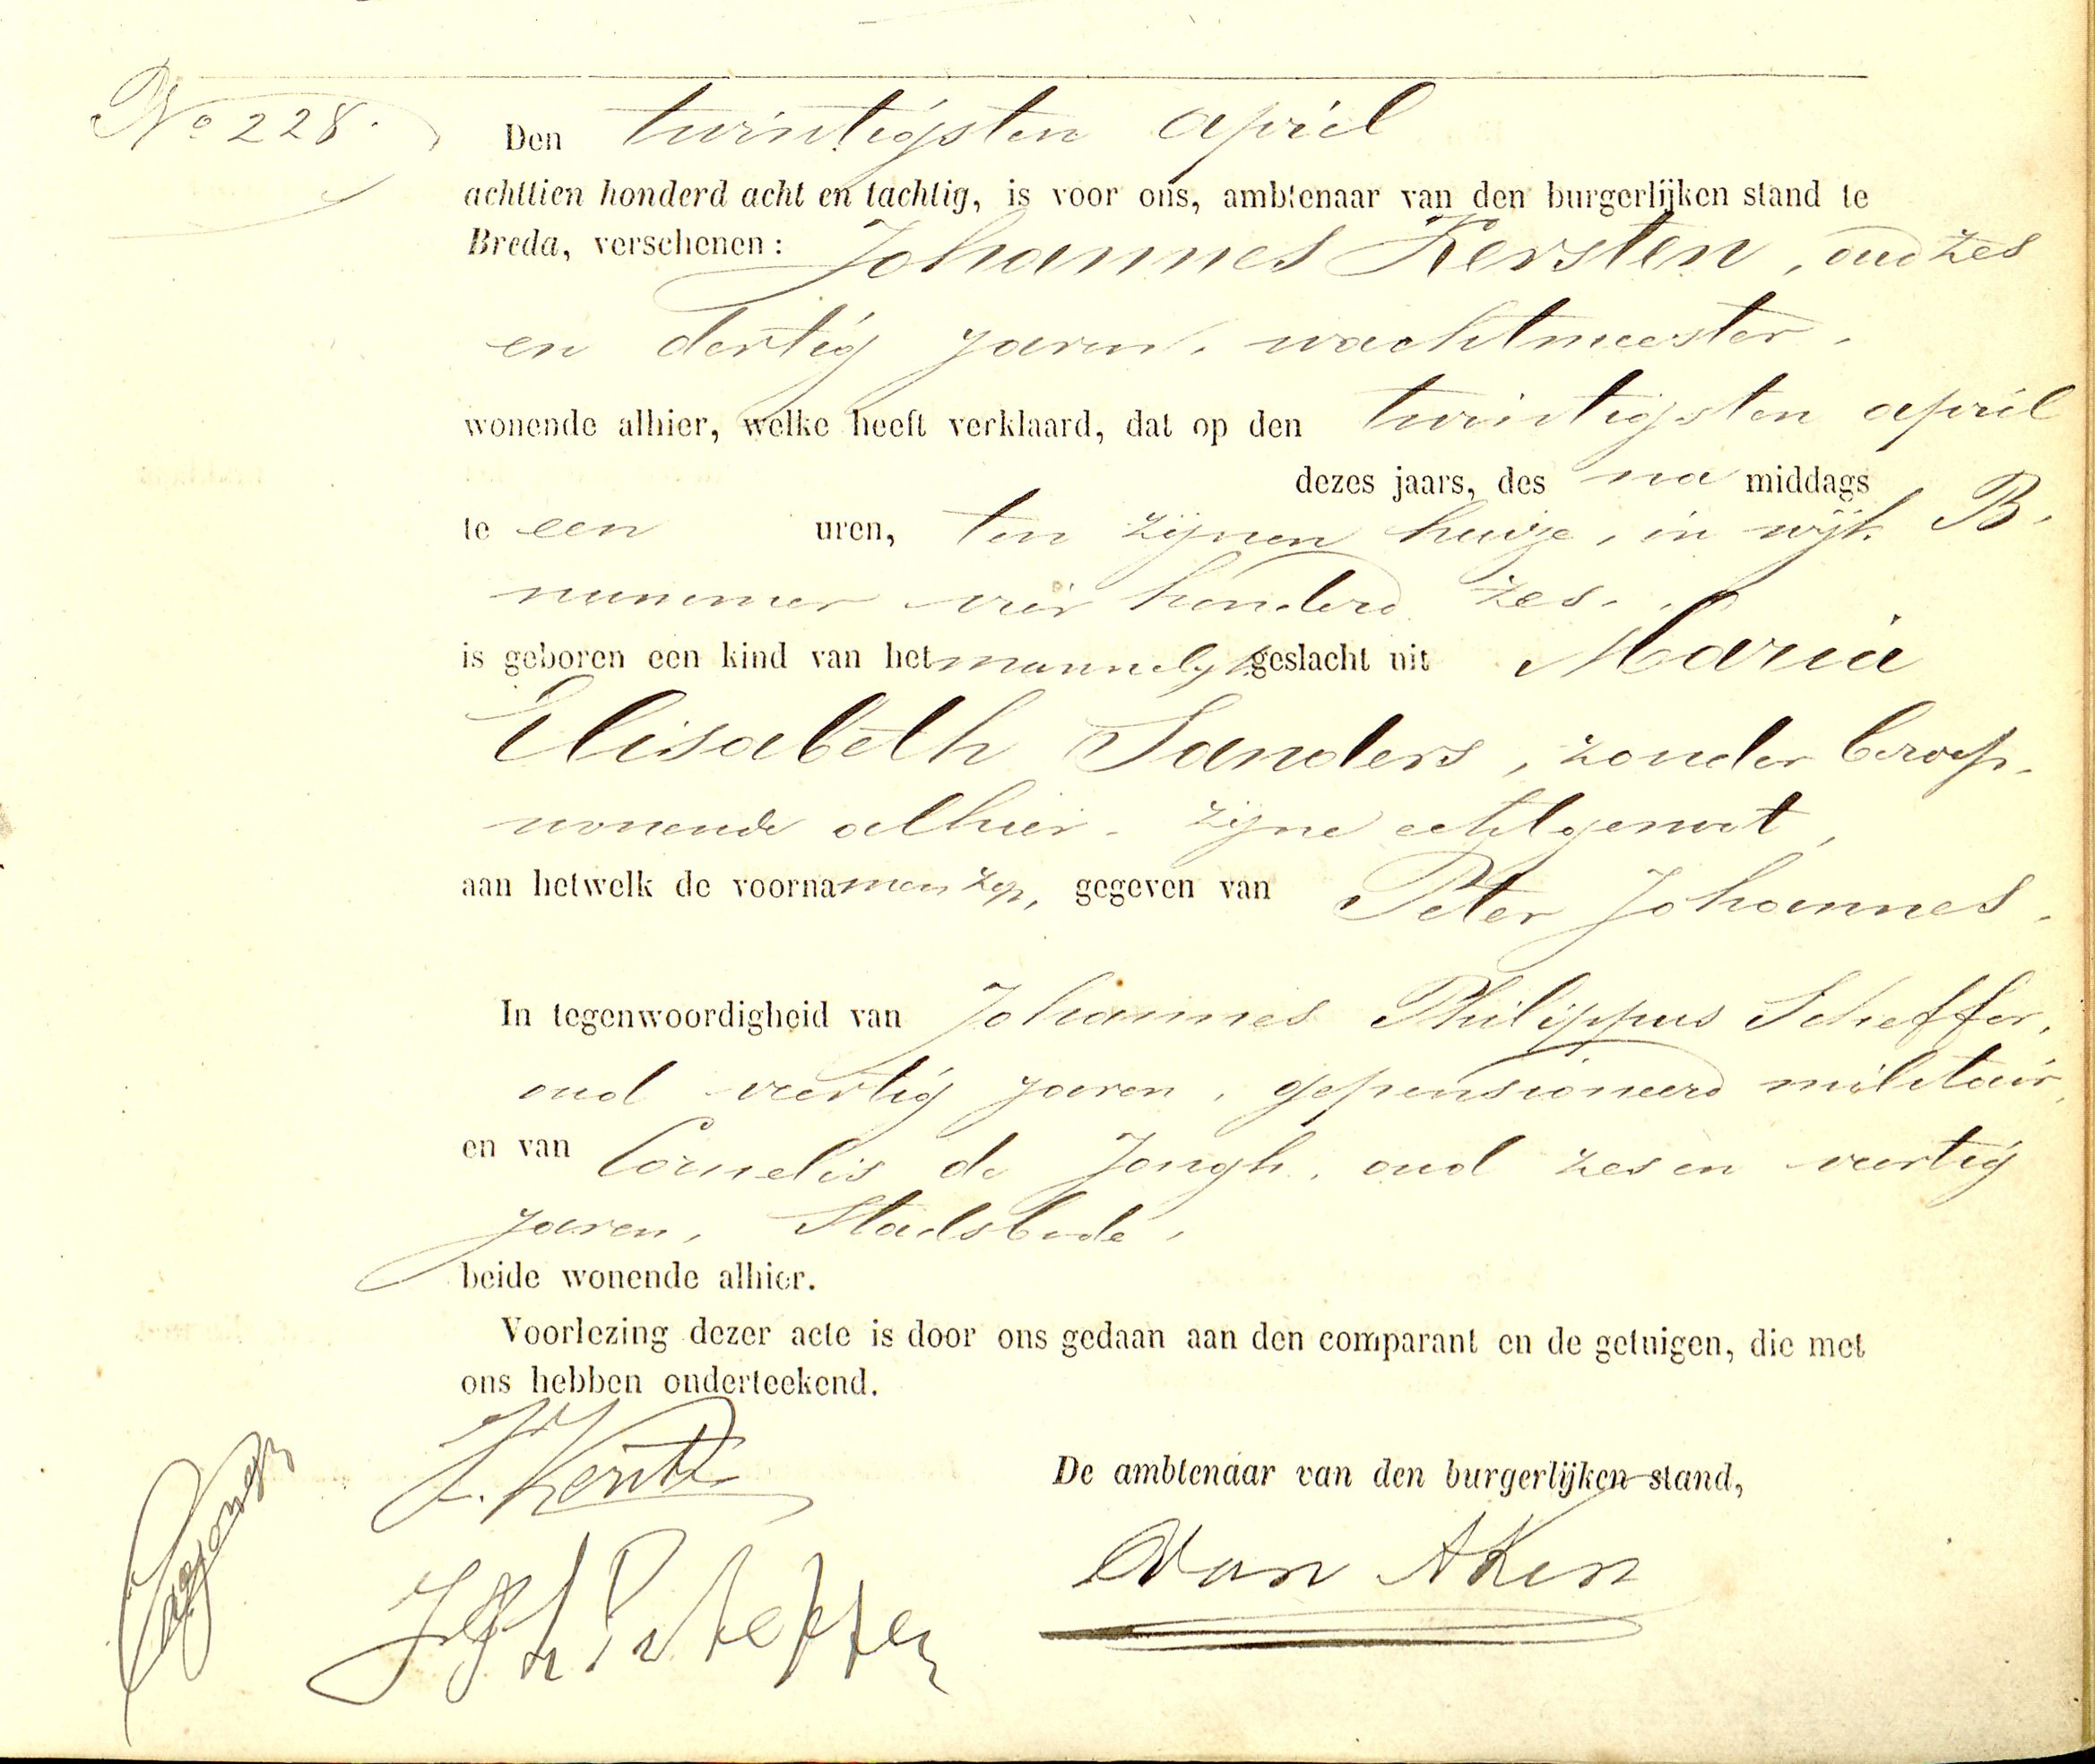 No 228.
Den twintigsten april
achttien honderd acht en tachtig, is voor ons, ambtenaar van den burgerlijken stand te
Breda, verschenen: Johannes Kersten, oud zes
en dertig jaren, wachtmeester,
wonende alhier, welke heeft verklaard, dat op den twintigsten april
dezes jaars, des na middags
te een uren, ten zijnen huize, in wijk B,
nummer vier honderd zes,
is geboren een kind van het mannelijk geslacht uit Maria
Elisabeth Sanders, zonder beroep,
wonende alhier, zijne echtgenoot,
aan hetwelk de voornamen zijn, gegeven van Peter Johannes.
In tegenwoordigheid van Johannes Philippus Scheffer,
oud veertig jaren, gepensioneerd militair,
en van Cornelis de Jongh, oud zes en veertig
jaren, Stadsbode,
beide wonende alhier.
Voorlezing dezer acte is door ons gedaan aan den comparant en de getuigen, die met
ons hebben onderteekend.
De ambtenaar van den burgerlijken stand,
Van Aken